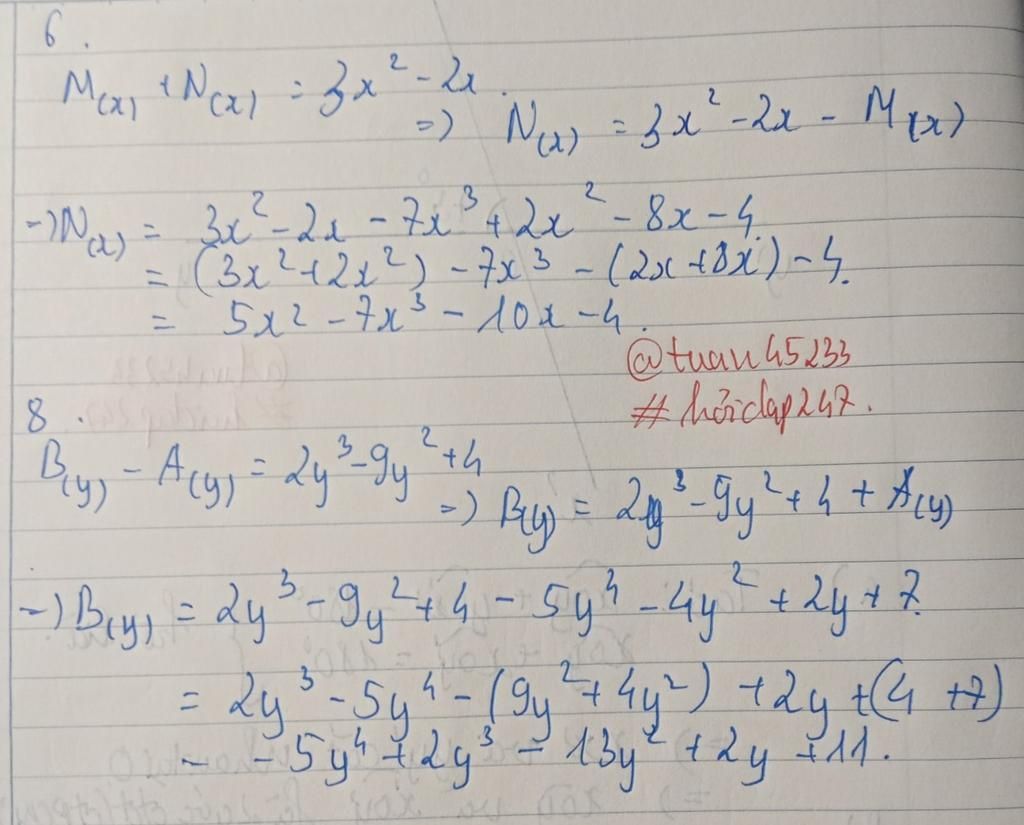 6.
M(x) + N(x) = 3x² - 2x.
=> N(x) = 3x² - 2x - M(x)
-> N(x) = 3x² - 2x - 7x³ + 2x² - 8x - 4
= (3x² + 2x²) - 7x³ - (2x + 8x) - 4.
= 5x² - 7x³ - 10x - 4.
@tuan45233
#hỏidap247.
8.
B(y) - A(y) = 2y³ - 9y² + 4
=> B(y) = 2y³ - 9y² + 4 + A(y)
-> B(y) = 2y³ - 9y² + 4 - 5y⁴ - 4y² + 2y + 7
= 2y³ - 5y⁴ - (9y² + 4y²) + 2y + (4 + 7)
= -5y⁴ + 2y³ - 13y² + 2y + 11.